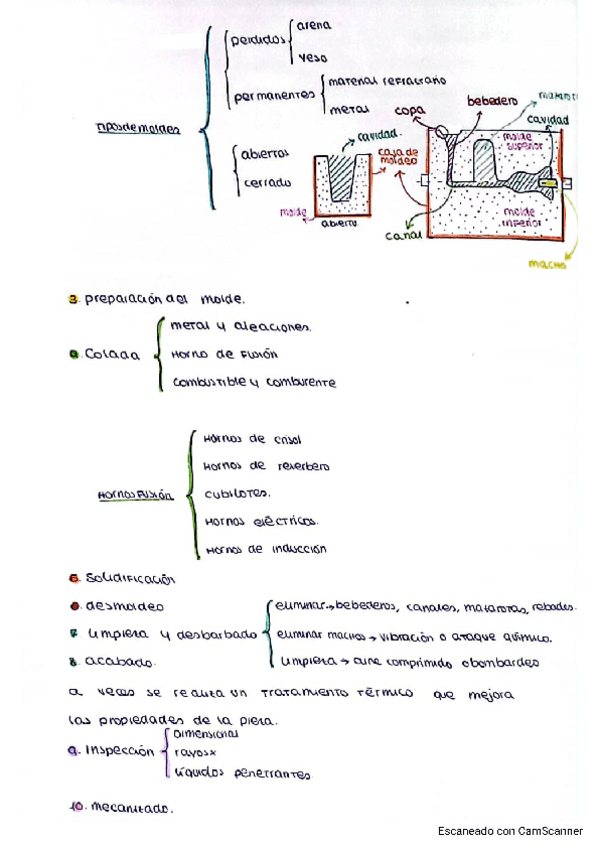 Tipos de moldes
perdidos
arena
yeso
permanentes
material refractario
metal
abiertos
cerrado
cavidad
caja de
moldeo
molde
abierto
copa
bebedero
cavidad
molde
superior
molde
inferior
canal
macho
3. preparación del molde.
4. Colada
metal y aleaciones.
Horno de fusión
combustible y comburente
Hornos fusión
Hornos de crisol
Hornos de reverbero
cubilotes.
Hornos eléctricos.
Hornos de inducción
5. Solidificación
6. desmoldeo
7. limpieza y desbarbado
eliminar → bebederos, canales, mazarotas, rebabas.
eliminar machos → vibración o ataque químico.
limpieza → aire comprimido o bombardeo
8. acabado.
a veces se realiza un tratamiento térmico que mejora
las propiedades de la pieza.
9. Inspección
dimensional
rayos x
líquidos penetrantes
10. mecanizado.
Escaneado con CamScanner